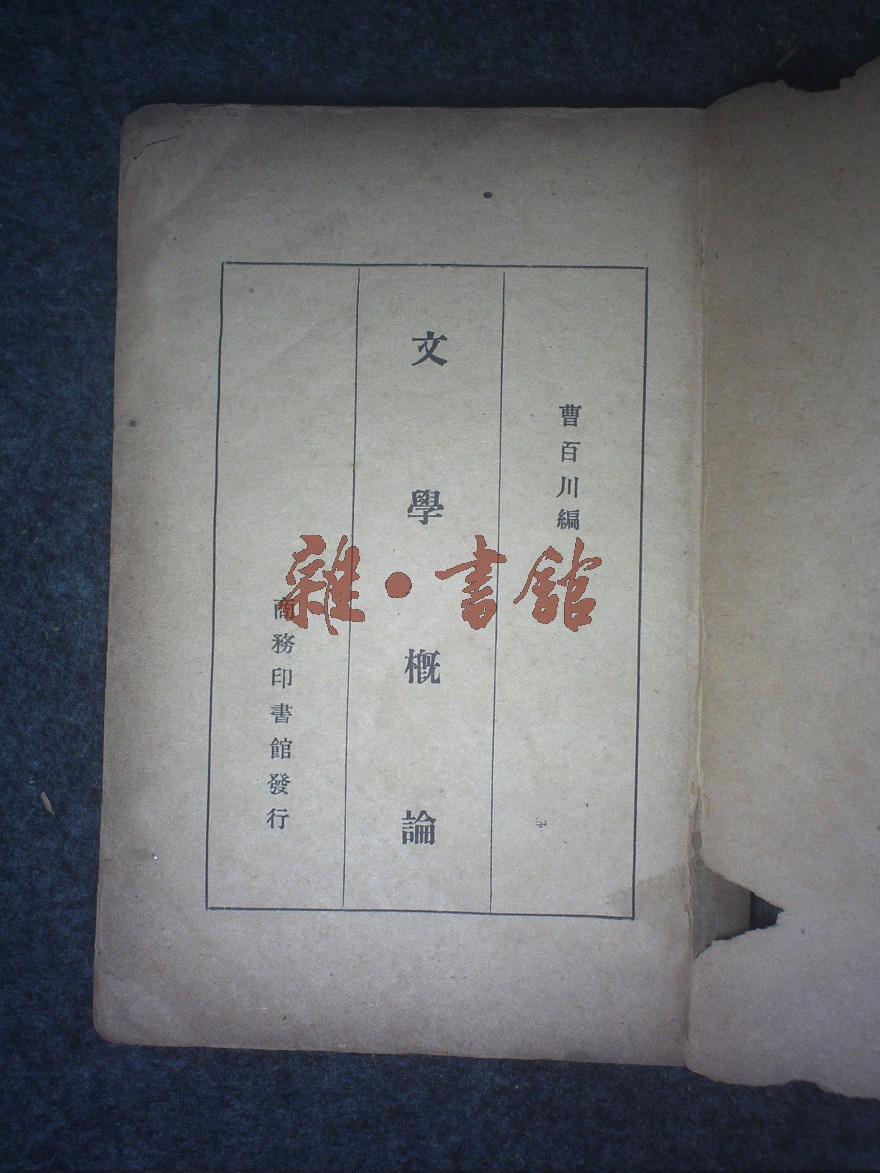 曹百川編
文學概論
商務印書館發行
雜·書館